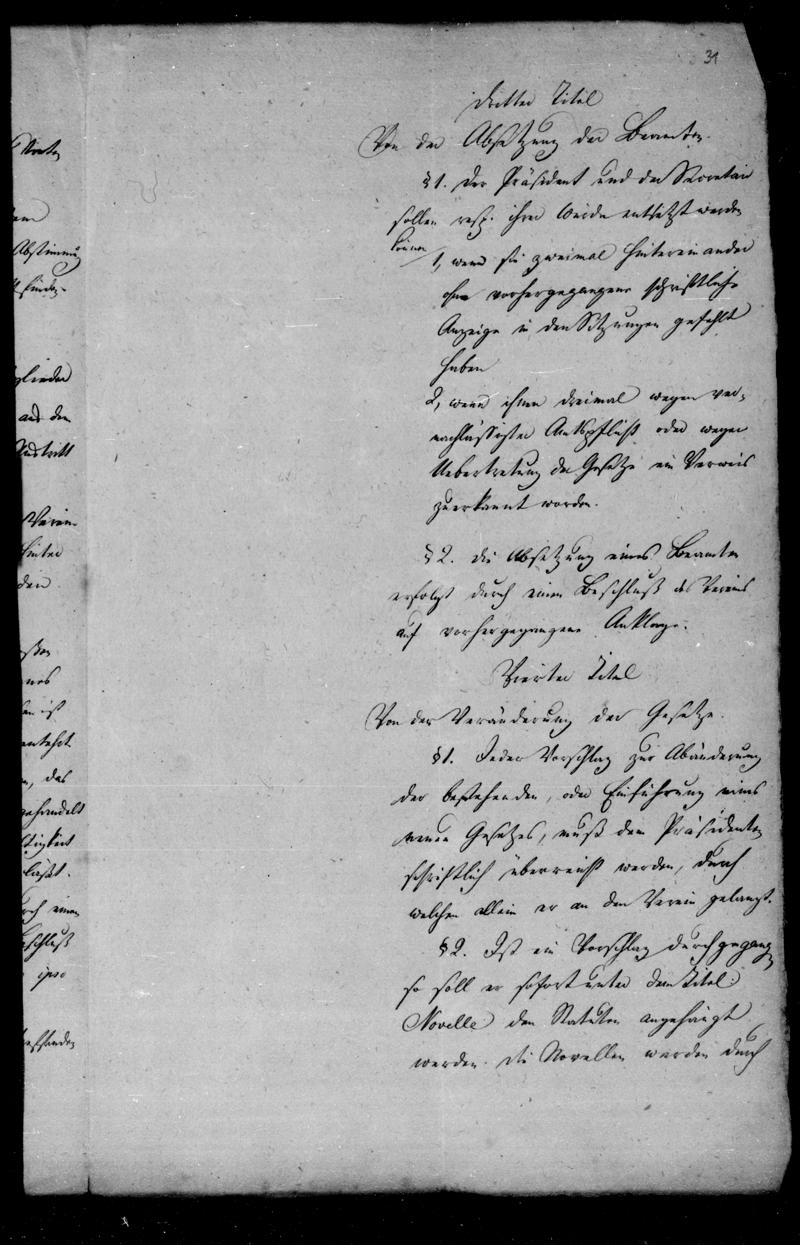 31
Dritter Titel
Von der Absetzung der Beamten.
§ 1. Der Präsident und der Secretair
sollen resp. ihrer Würde entsetzt werden
können
1, wenn sie zweimal hintereinander
ohne vorhergegangene schriftliche
Anzeige in den Sitzungen gefehlt
haben
2, wenn ihnen dreimal wegen ver-
nachlässigter Amtspflicht oder wegen
Uebertretung der Gesetze ein Verweis
zuerkannt worden.
§ 2. Die Absetzung eines Beamten
erfolgt durch einen Beschluß des Vereins
auf vorhergegangene Anklage.
Vierter Titel
Von der Veränderung der Gesetze.
§ 1. Jeder Vorschlag zur Abänderung
der bestehenden, oder Einführung eines
neuen Gesetzes, muß dem Präsidenten
schriftlich überreicht werden, durch
welchen allein er an den Verein gelangt.
§ 2. Ist ein Vorschlag durchgegangen
so soll er sofort unter dem Titel:
Novelle den Statuten angehängt
werden. Die Novellen werden durch
Abstimmung
glieder
aus dem
Austritt
Verein
hinter
den
ist
, das
gehandelt
tigkeit
läßt.
durch einen
Beschluß
ipso